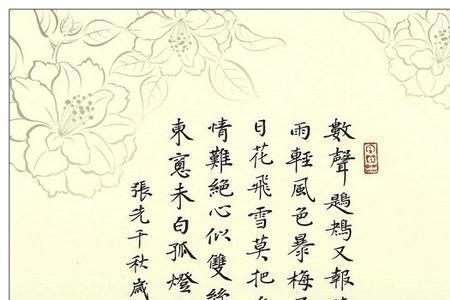 數聲鶗鴂又報
雨輕風色暴梅
日花飛雪莫把
情難絕心似雙絲
東窗未白孤燈
張先千秋歲